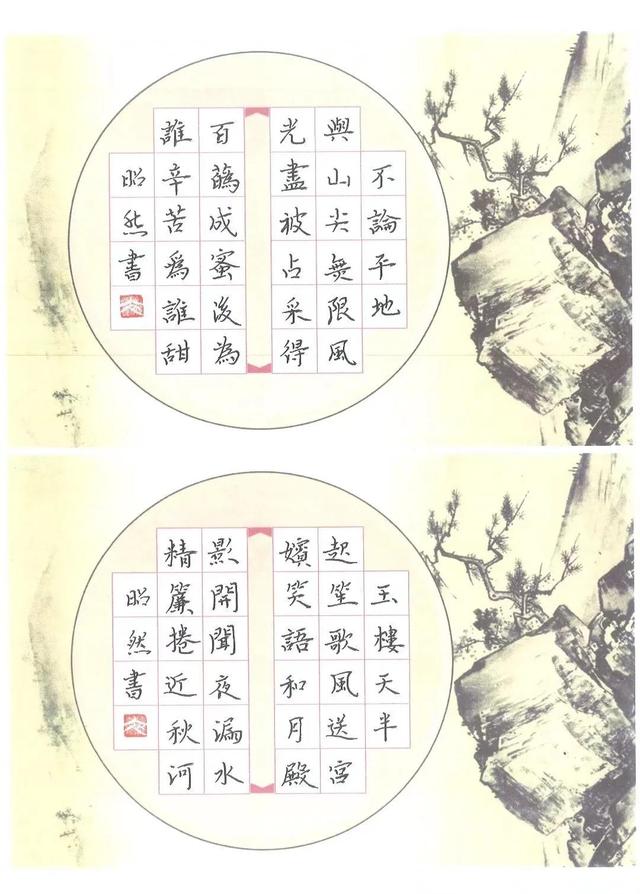 不論平地
與山尖無限風
光盡被占采得
百蘤成蜜後為
誰辛苦爲誰甜
昭然書
玉樓天半
起笙歌風送宮
嬪笑語和月殿
影開聞夜漏水
精簾捲近秋河
昭然書